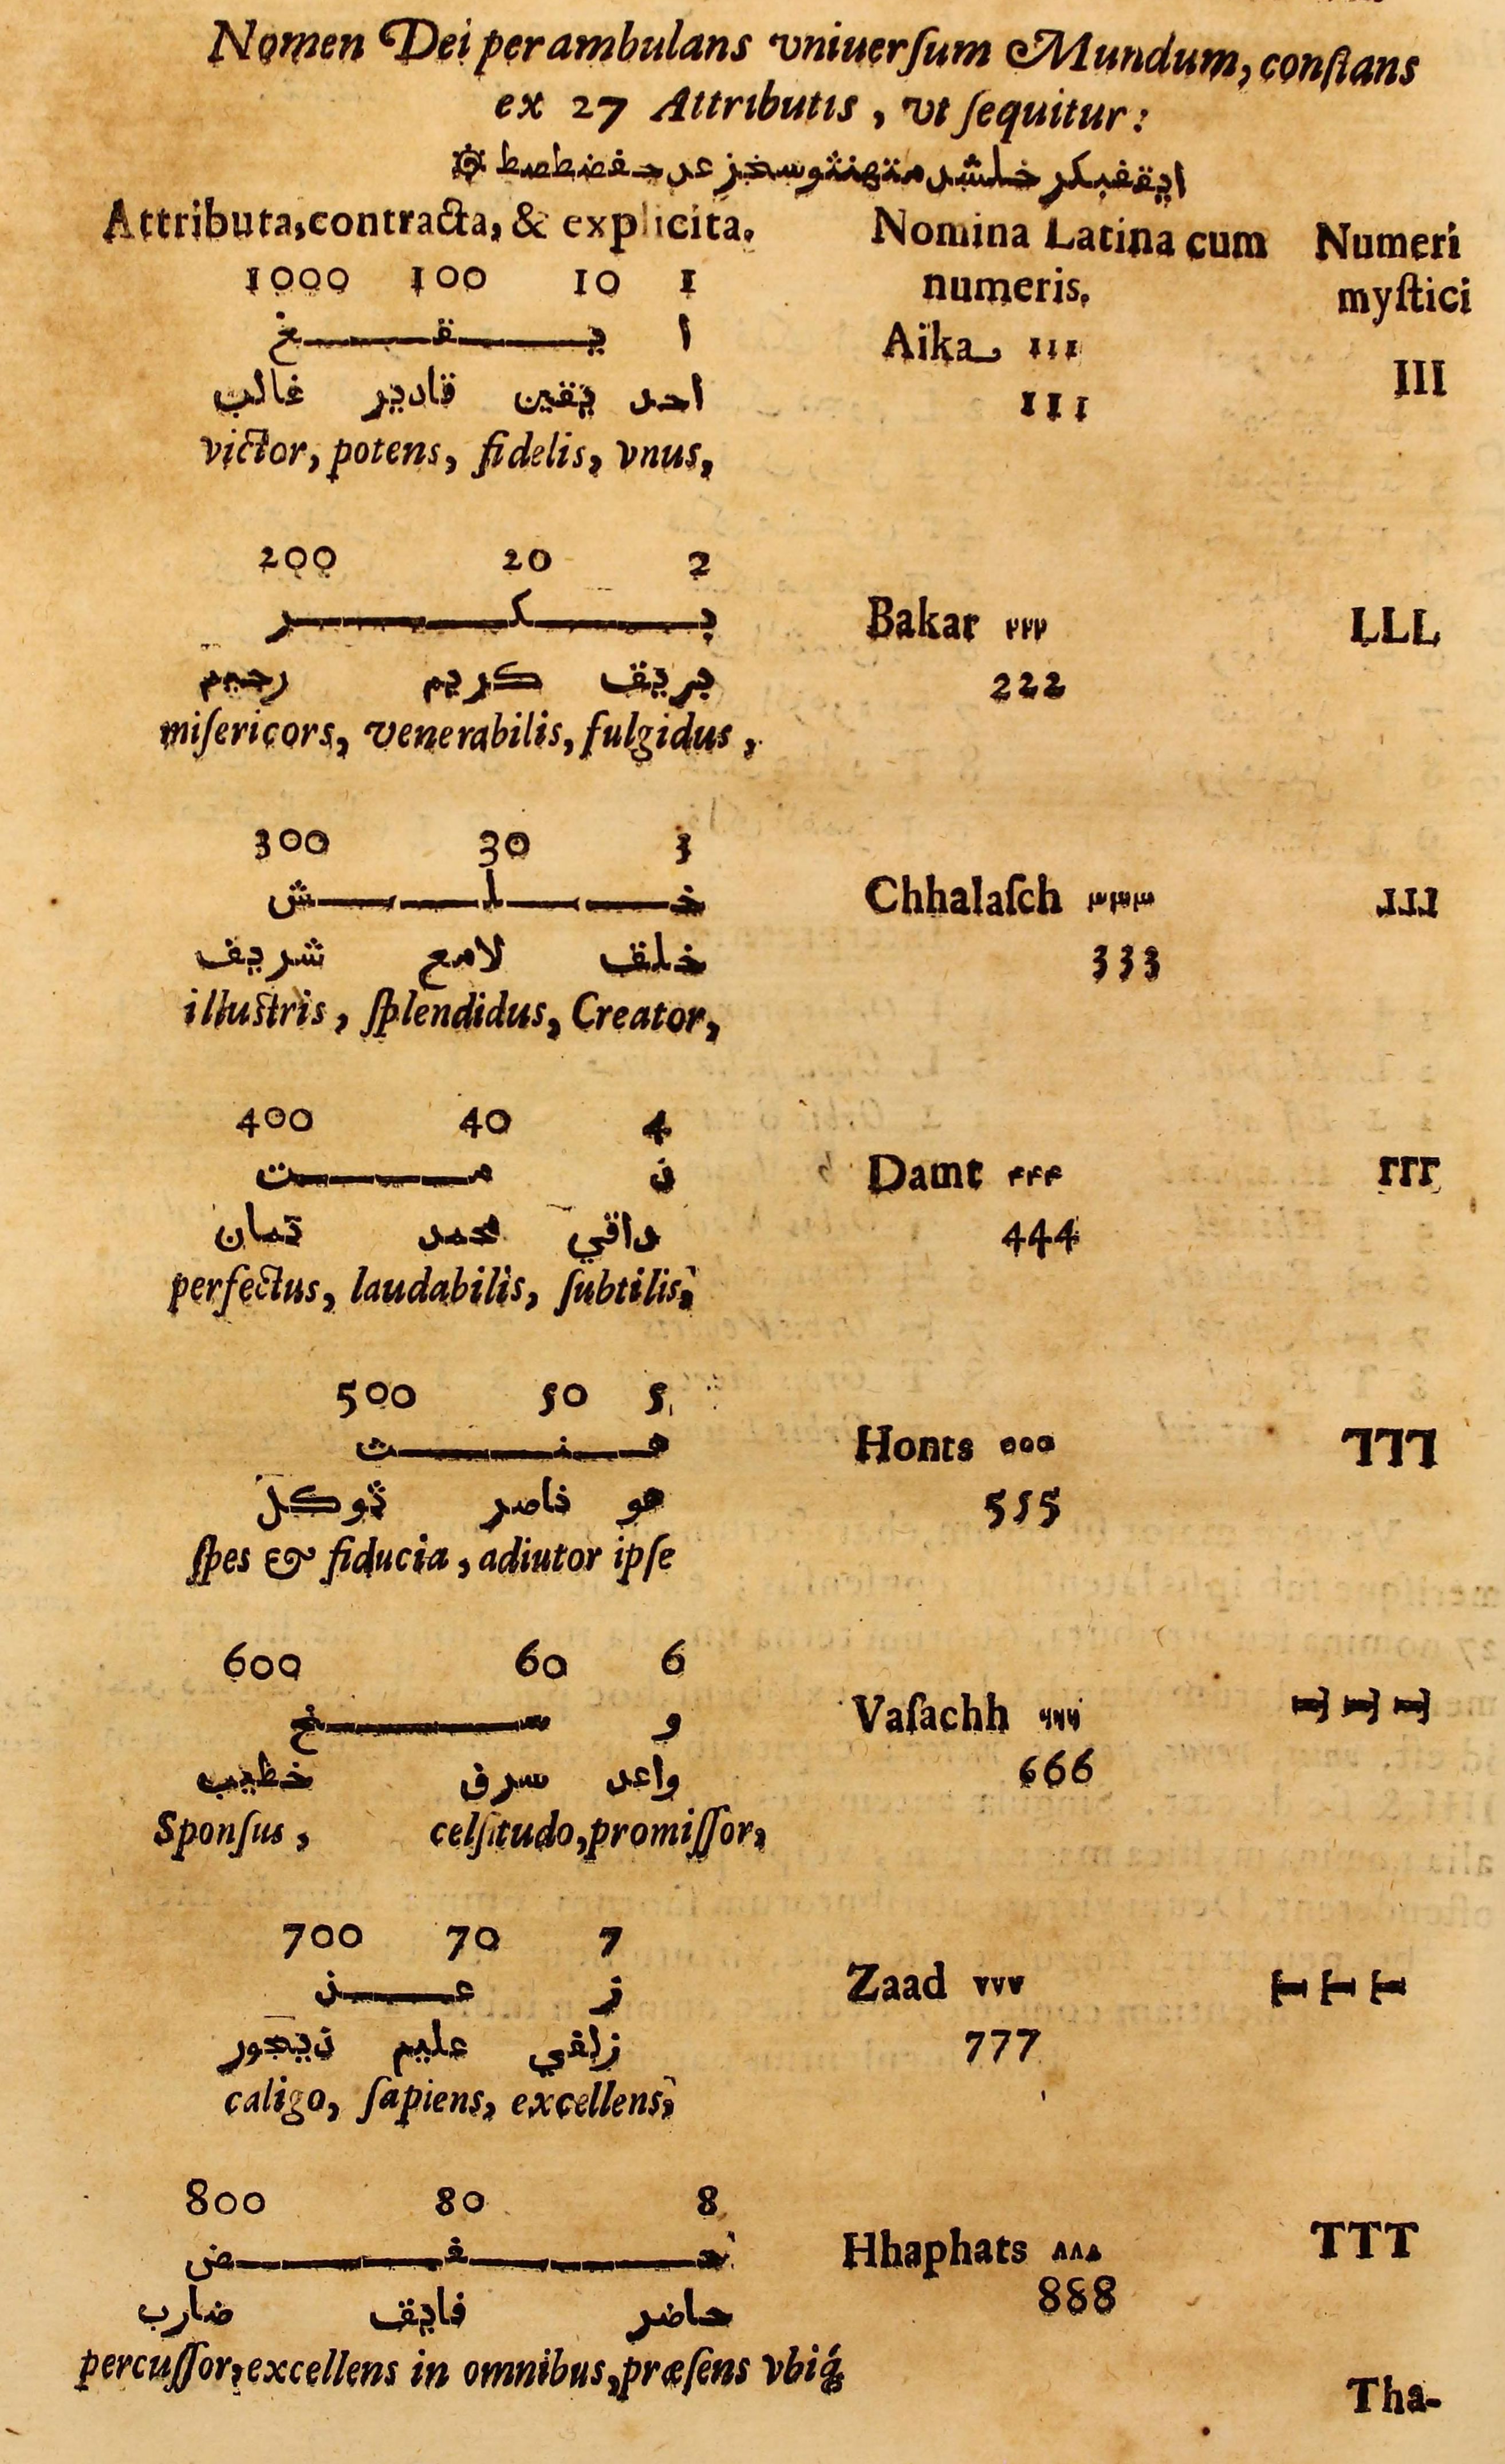 Nomen Dei perambulans vniuerſum Mundum, conſtans
ex 27 Attributis, vt ſequitur:
Attributa, contracta, & explicita.
Nomina Latina cum
numeris.
Numeri
myſtici
1000 100 10 1
ا يـــقـــغ
احد يقين قادير غالب
victor, potens, fidelis, vnus,
Aika ١١١
111
III
200 20 2
بـــكـــر
بريق كريم رحيم
miſericors, venerabilis, fulgidus,
Bakar ٢٢٢
222
LLL
300 30 3
خـــلـــش
خلق لامع شريف
illuſtris, ſplendidus, Creator,
Chhalaſch ٣٣٣
333
400 40 4
مـــت
داقي محمد تمان
perfectus, laudabilis, ſubtilis,
Damt ۴۴۴
444
500 50 5
هـــنـــث
هو ناصر توكل
ſpes & fiducia, adiutor ipſe
Honts ٥٥٥
555
600 60 6
و ســـخ
واعد سرق خطيب
Sponſus, celſitudo, promiſſor,
Vaſachh
666
700 70 7
ز عـــذ
زلقي عليم
caligo, ſapiens, excellens,
Zaad ٧٧٧
777
800 80 8
حـــفـــض
حاضر فايق ضارب
percuſſor, excellens in omnibus, præſens vbiq́;
Hhaphats ٨٨٨
888
TTT
Tha-